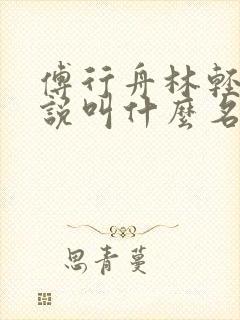 傅行舟林輕
說叫什麼名
思青蔓